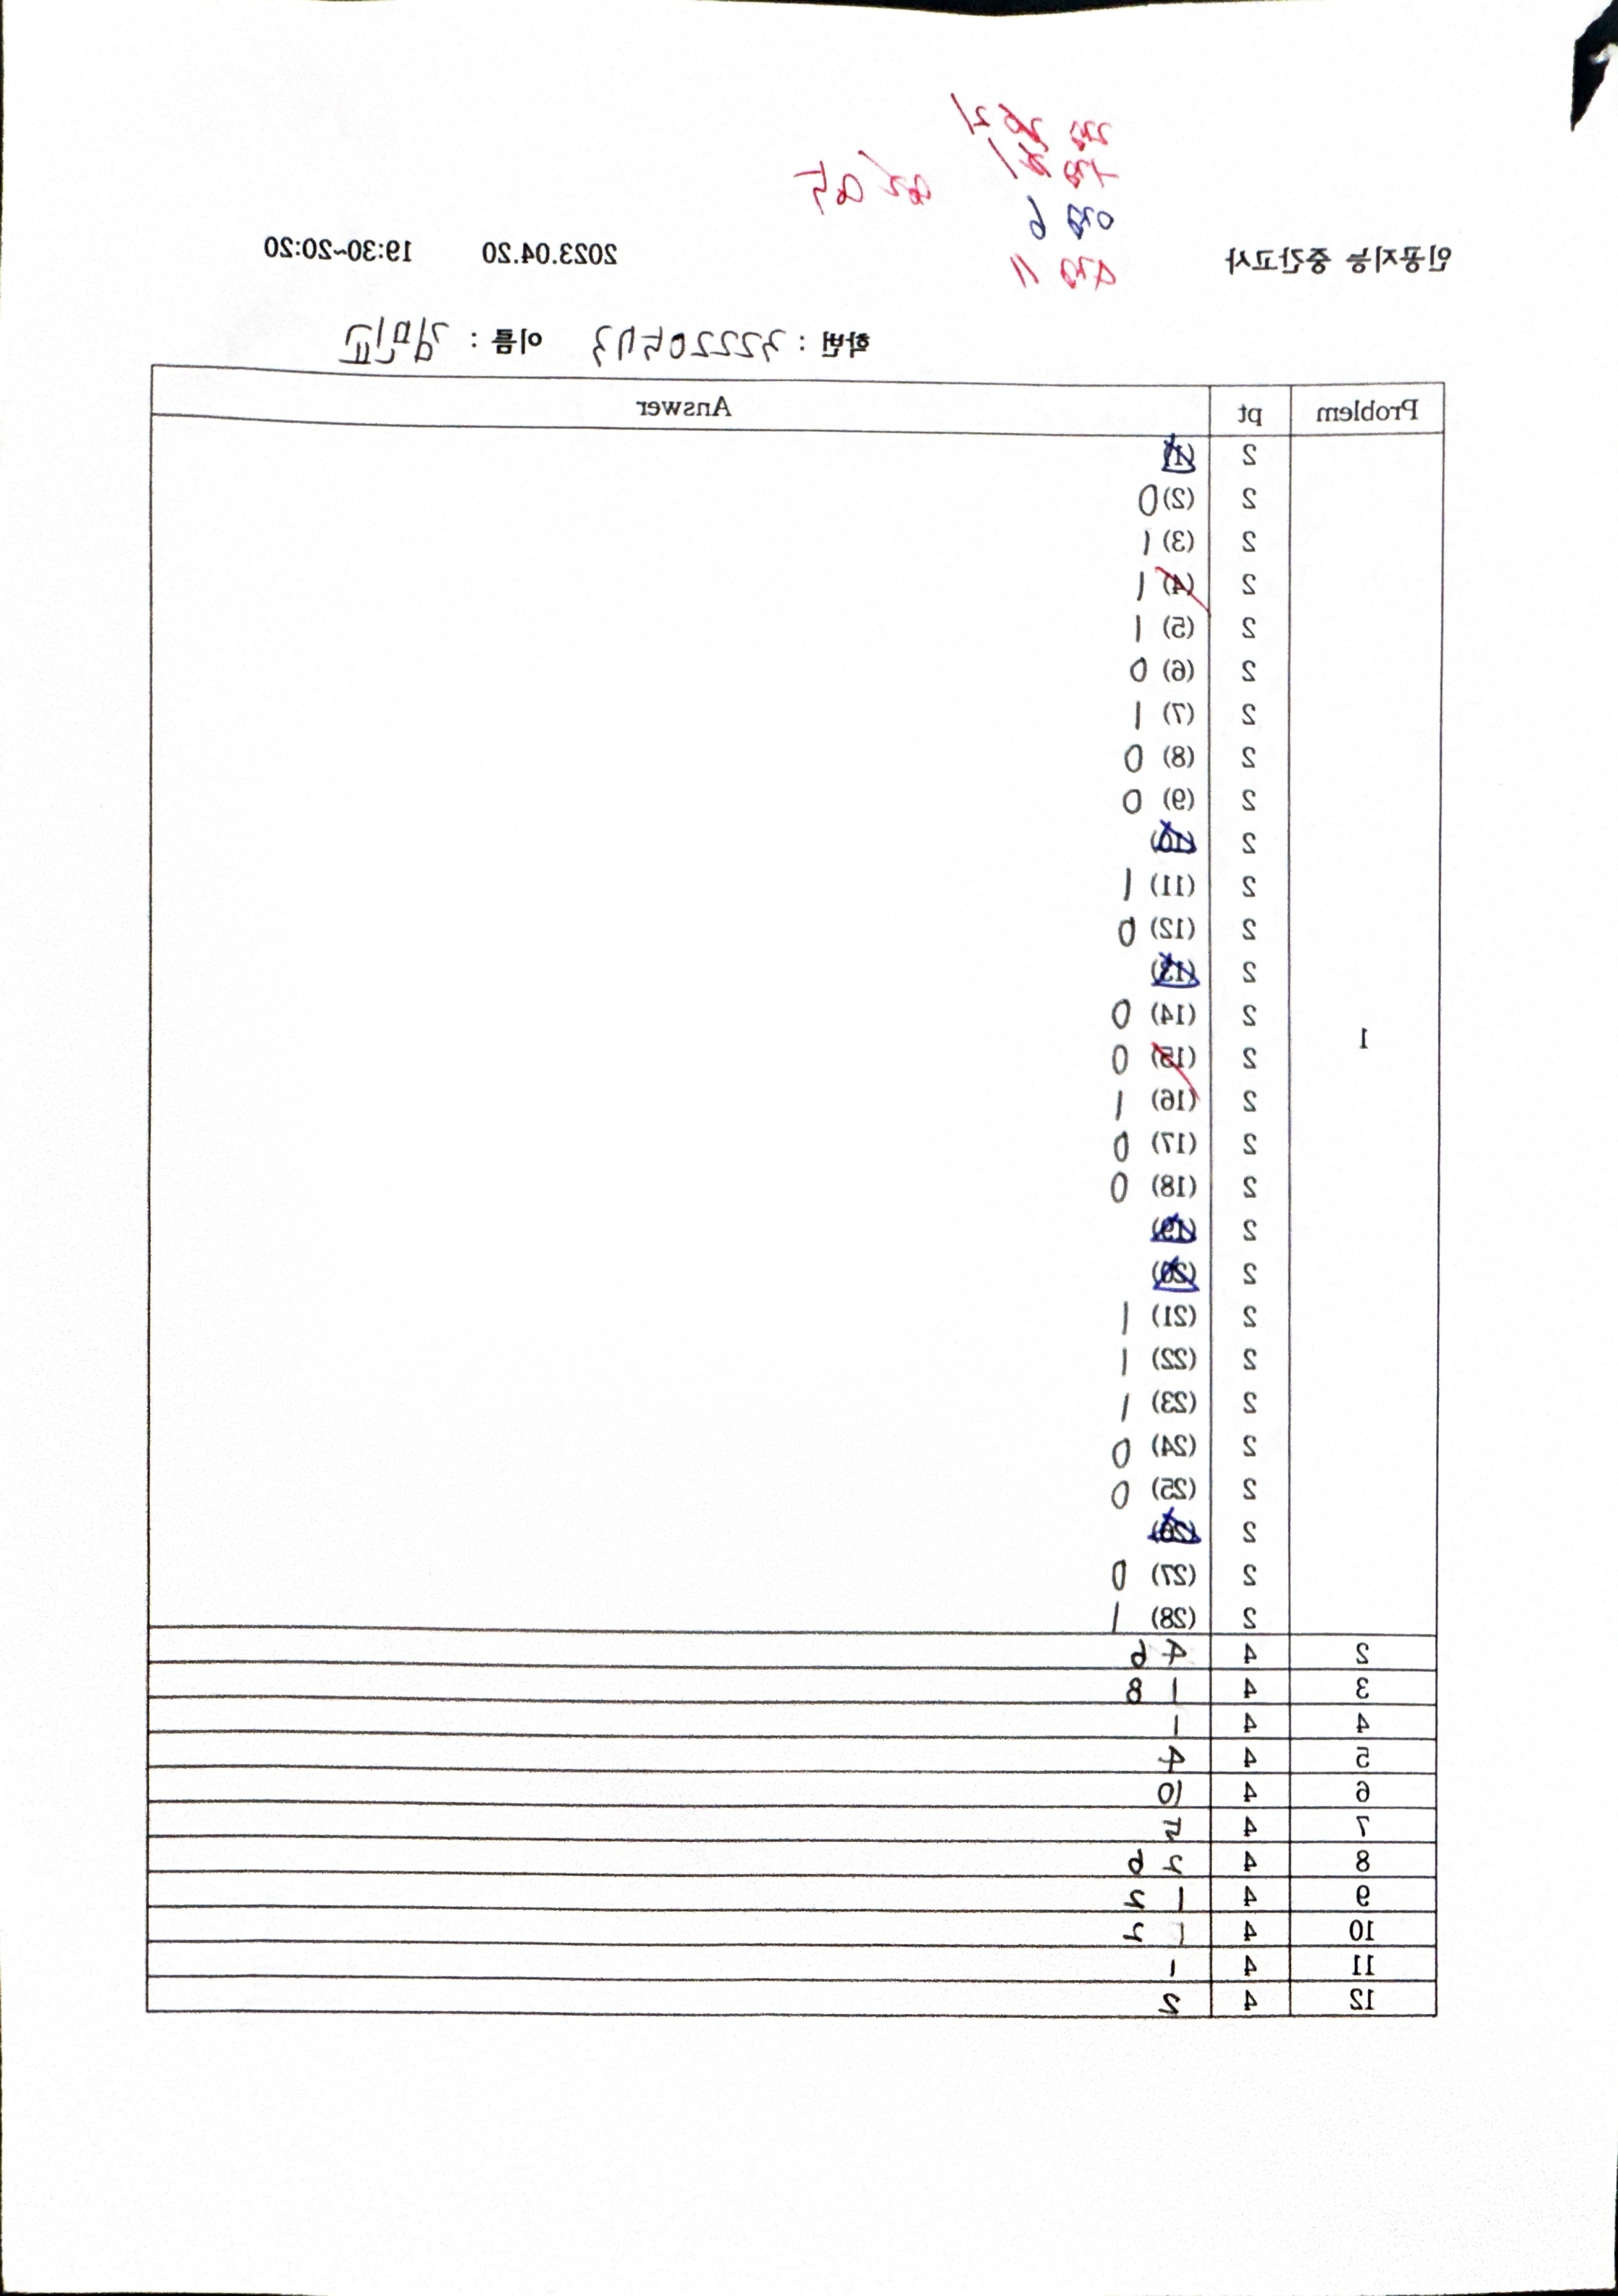 인공지능 중간고사 2023.04.20 19:30~20:20
학번 : 이름 : 김민교
Problem pt Answer
1
2 (1)
2 (2) 0
2 (3) 1
2 (4) 1
2 (5) 1
2 (6) 0
2 (7) 1
2 (8) 0
2 (9) 0
2 (10)
2 (11) 1
2 (12) 0
2 (13)
2 (14) 0
2 (15) 0
2 (16) 1
2 (17) 0
2 (18) 0
2 (19)
2 (20)
2 (21) 1
2 (22) 1
2 (23) 1
2 (24) 0
2 (25) 0
2 (26)
2 (27) 0
2 (28) 1
2 4 4 6
3 4 1 8
4 4 1
5 4 4
6 4 10
7 4 5
8 4 2 6
9 4 1 2
10 4 1 2
11 4 1
12 4 2